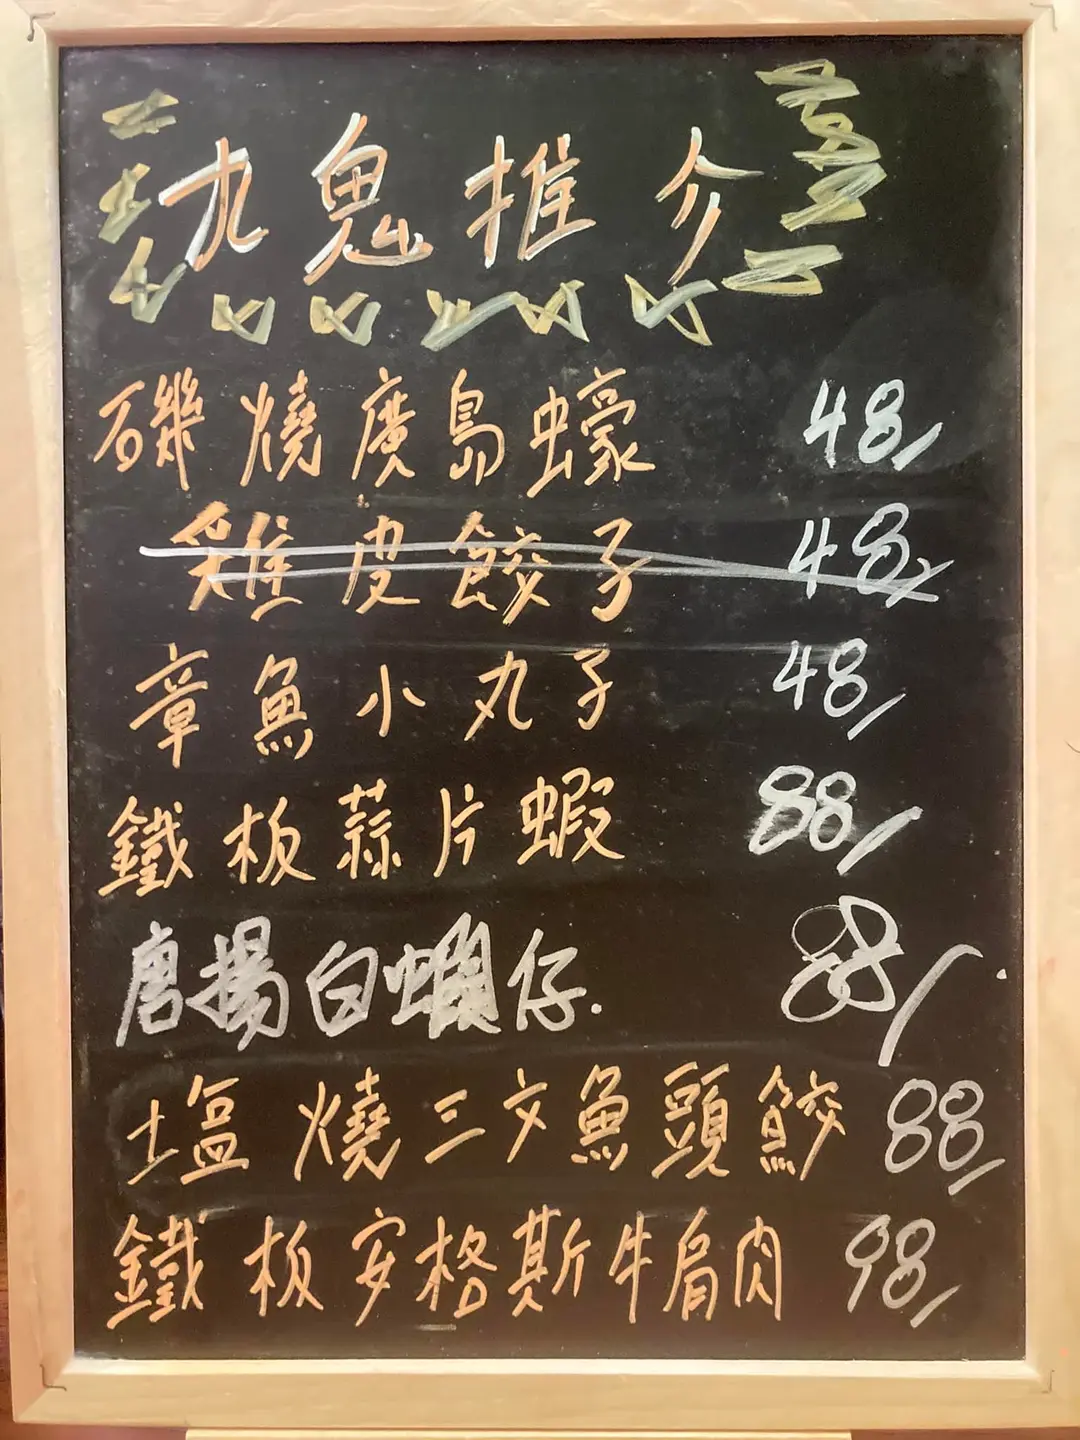 九鬼推介
磯燒廣島蠔 48/
雞皮餃子 48/
章魚小丸子 48/
鐵板蒜片蝦 88/
唐揚白蝦仔. 88/
塩燒三文魚頭鮫 88/
鐵板安格斯牛肩肉 98/